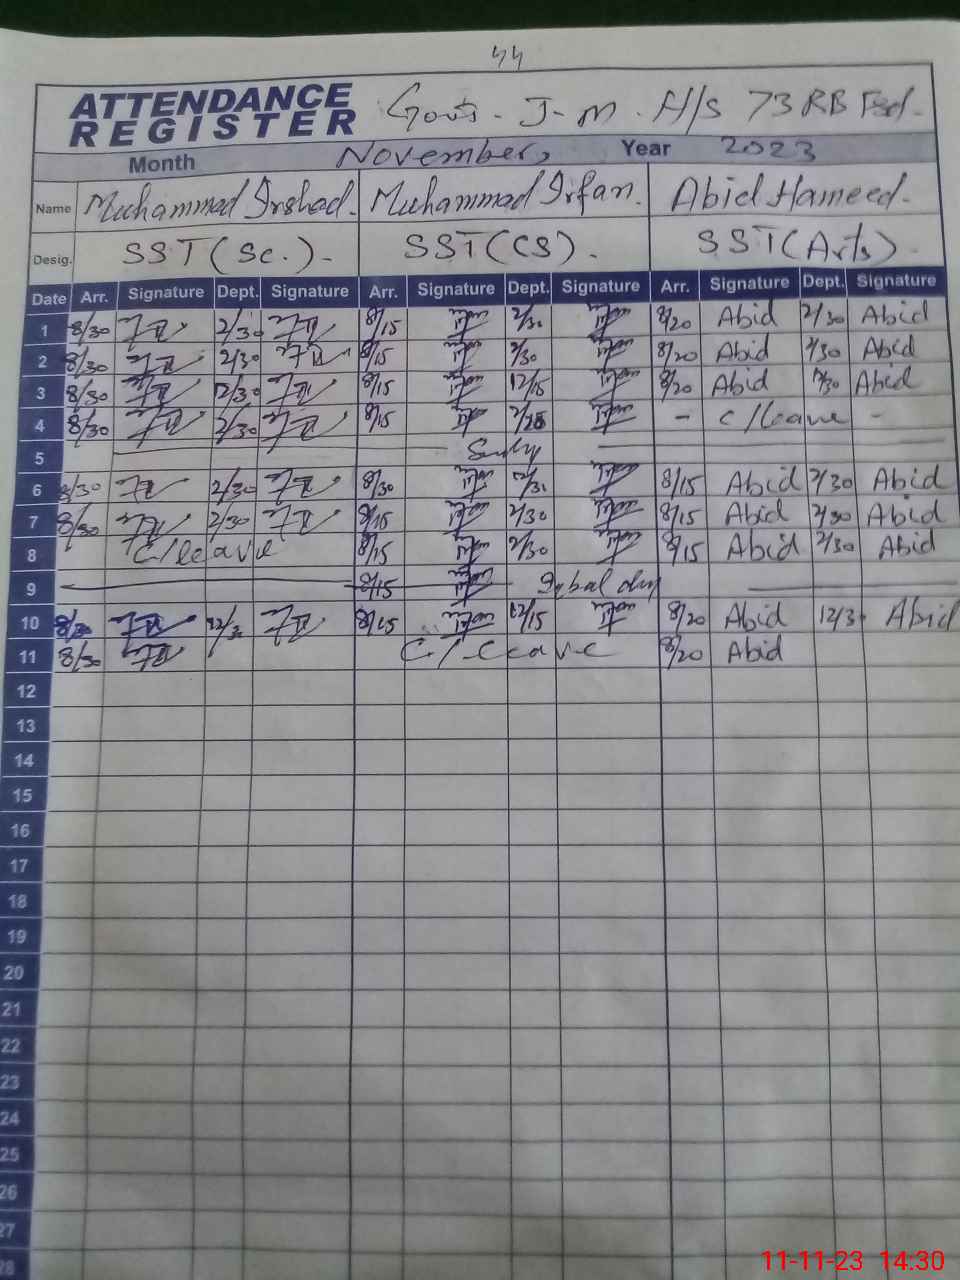 44
ATTENDANCE REGISTER Govt. J-M. H/S 73 RB Fsd.
Month November, Year 2023
Name Muhammad Irshad. Muhammad Irfan. Abid Hameed.
Desig. SST (Sc.)- SST (CS). SST (Arts).
Date Arr. Signature Dept. Signature Arr. Signature Dept. Signature Arr. Signature Dept. Signature
1 8/30 2/30 8/15 2/30 8/20 Abid 2/30 Abid
2 8/30 2/30 8/15 2/30 8/20 Abid 2/30 Abid
3 8/30 12/30 8/15 12/15 8/20 Abid Abid
4 8/30 2/30 8/15 - c/leave -
5 Sunday
6 8/30 2/30 8/30 8/15 Abid 2/30 Abid
7 8/30 2/30 8/15 2/30 8/15 Abid 2/30 Abid
8 C/leave 8/15 2/30 8/15 Abid 2/30 Abid
9 8/15 Iqbal day
10 8/30 8/15 12/15 8/20 Abid 12/3 Abid
11 8/30 C/leave 8/20 Abid
12
13
14
15
16
17
18
19
20
21
22
23
24
25
26
27
28
11-11-23 14:30